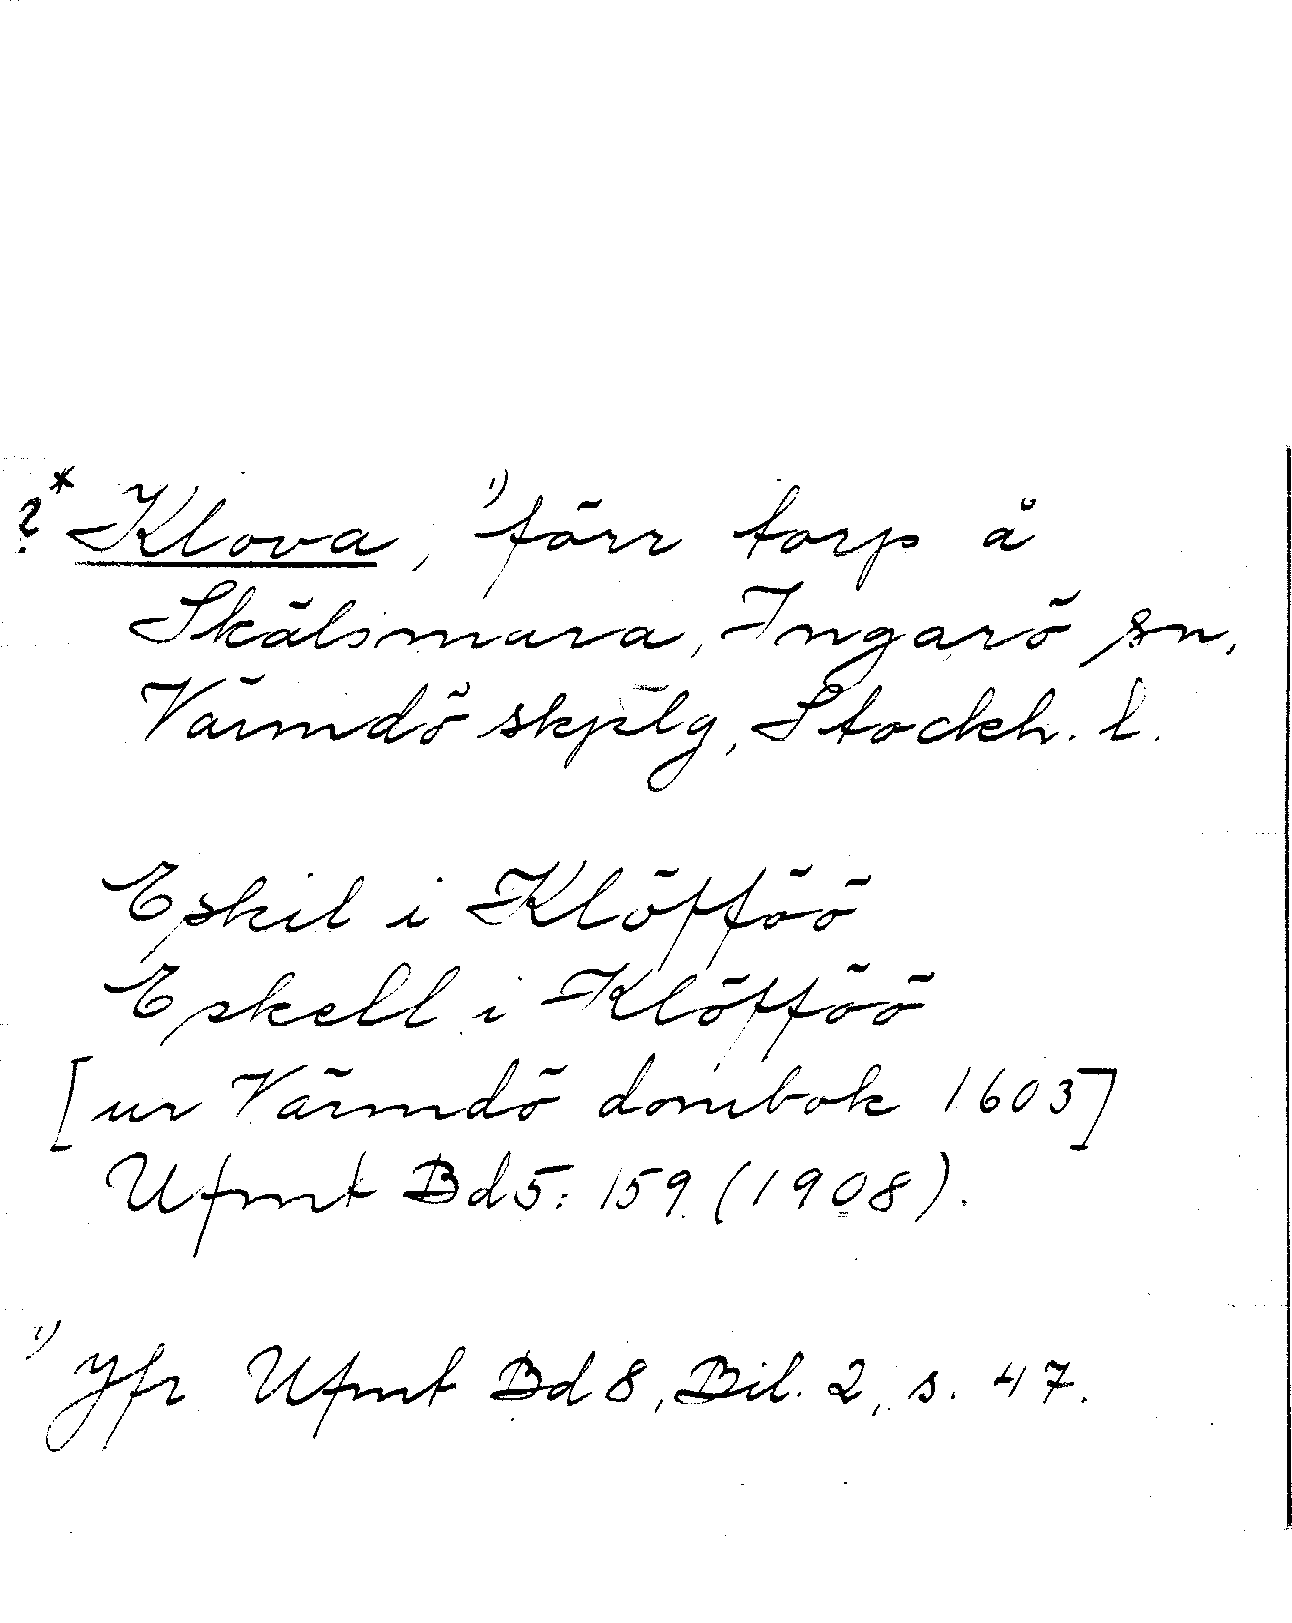 ?* Klova, ¹⁾ förr torp å
Skälsmara, Ingarö sn,
Värmdö skplg, Stockh. l.
Eskil i Klöfföö
Eskell i Klöfföö
[ur Värmdö dombok 1603]
Ufmt Bd 5: 159 (1908).
¹⁾ Jfr Ufmt Bd 8, Bil. 2, s. 47.